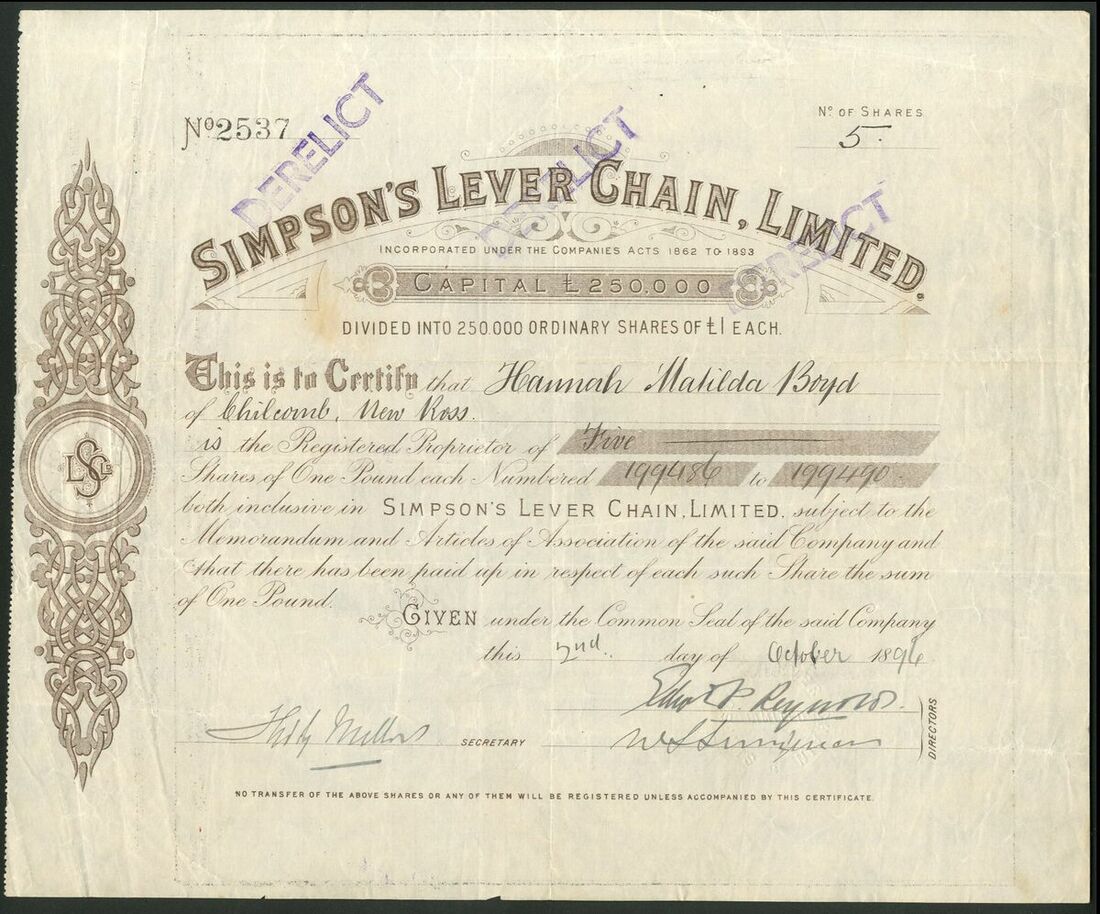 Nº 2537
Nº OF SHARES
5
DERELICT
DERELICT
DERELICT
SIMPSON'S LEVER CHAIN, LIMITED.
INCORPORATED UNDER THE COMPANIES ACTS 1862 TO 1893
CAPITAL £250,000
DIVIDED INTO 250.000 ORDINARY SHARES OF £1 EACH.
This is to Certify that Hannah Matilda Boyd
of Chilcomb, New Ross.
is the Registered Proprietor of Five
Shares of One Pound each Numbered 199486 to 199490
both inclusive in SIMPSON'S LEVER CHAIN, LIMITED, subject to the
Memorandum and Articles of Association of the said Company and
that there has been paid up in respect of each such Share the sum
of One Pound.
GIVEN under the Common Seal of the said Company
this 2nd. day of October 1896
Reynolds.
SECRETARY
DIRECTORS
NO TRANSFER OF THE ABOVE SHARES OR ANY OF THEM WILL BE REGISTERED UNLESS ACCOMPANIED BY THIS CERTIFICATE.